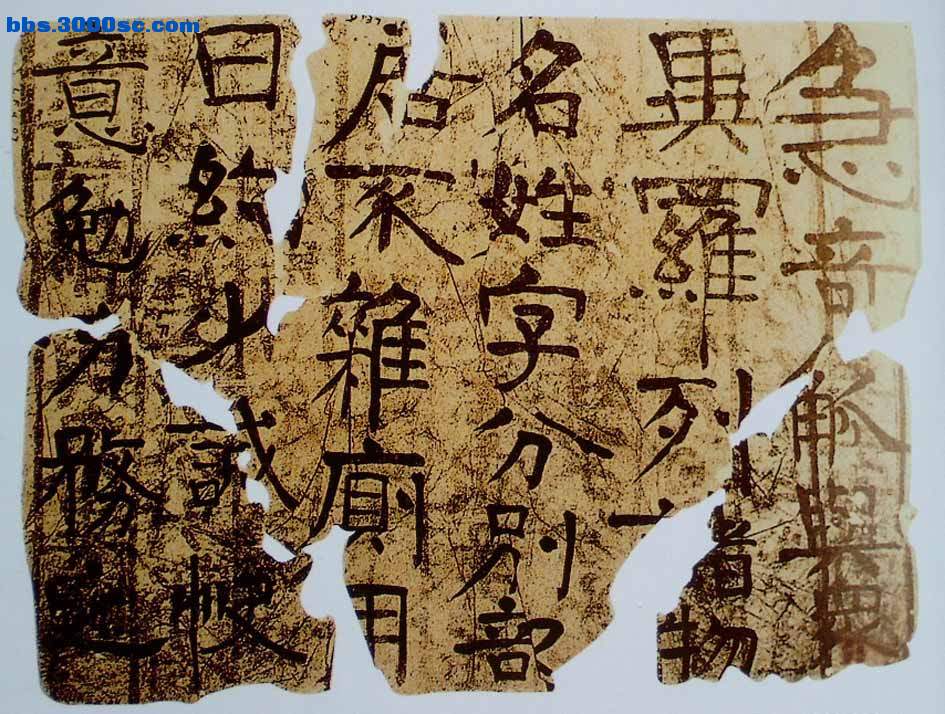 bbs.3000sc.com
急奇觚與眾
異羅列諸物
名姓字分別部
居不雜廁用
日約少誠快
意勉力務之